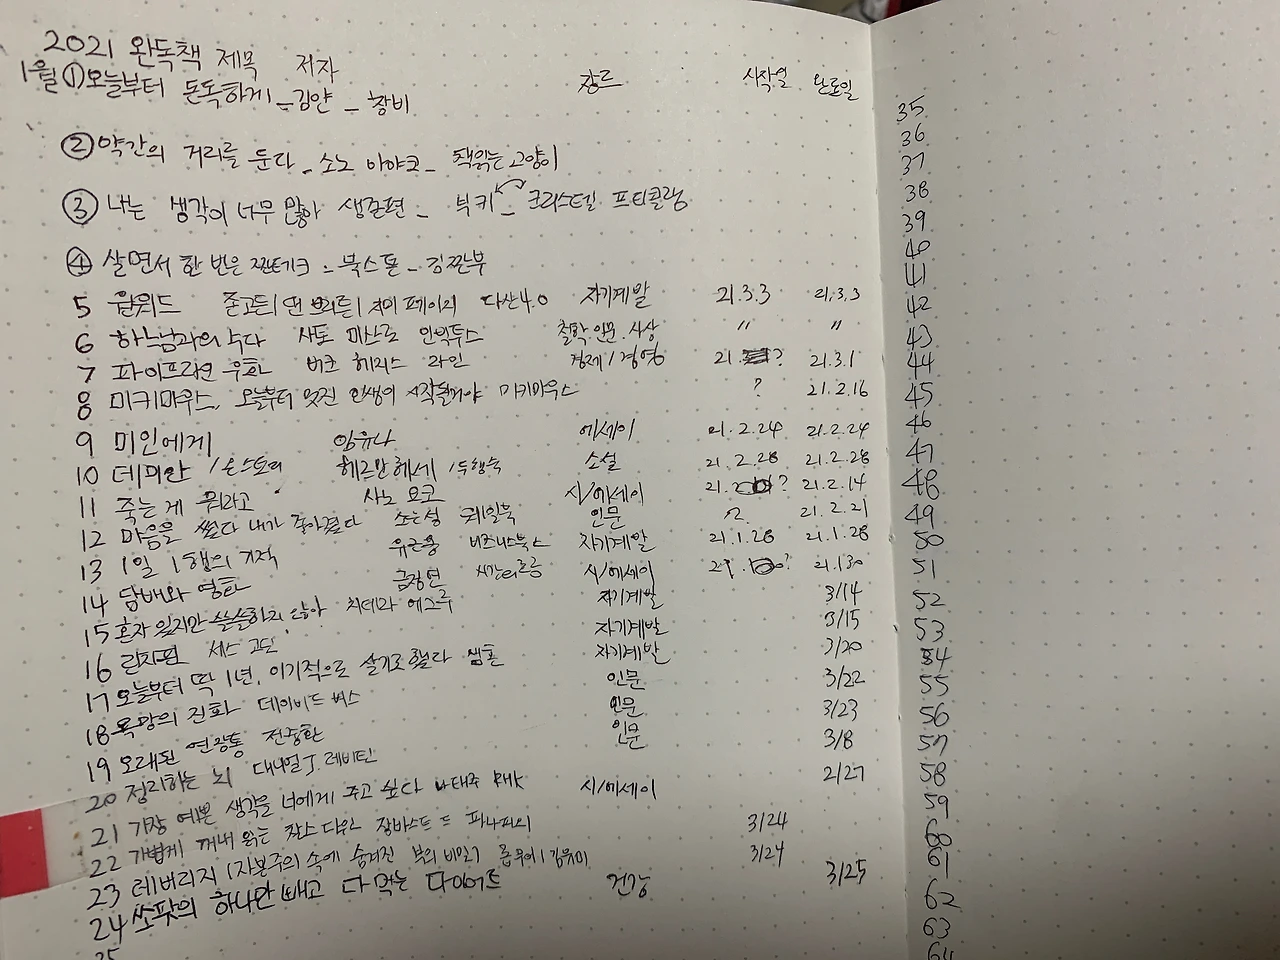 2021 완독책 제목 저자 장르 시작일 완료일
1월 ① 오늘부터 돈독하게 - 김얀 - 창비
② 약간의 거리를 둔다 - 소노 아야코 - 책읽는고양이
③ 나는 생각이 너무 많아 생존편 - 부키 - 크리스텔 프티콜랭
④ 살면서 한 번은 짠테크 - 북스톤 - 김짠부
5 원워드 존고든 | 댄 브리튼 | 지미 페이지 다산4.0 자기계발 21.3.3 21.3.3
6 하느님과의 수다 사토 미쓰로 인빅투스 철학.인문.사상 〃 〃
7 파이프라인 우화 버크 헤지스 라인 경제/경영 21. ? 21.3.1
8 미키마우스, 오늘부터 멋진 인생이 시작될거야 미키마우스 ? 21.2.16
9 미인에게 임유나 에세이 21.2.24 21.2.24
10 데미안 /온스토리 헤르만 헤세 / 에세이 소설 21.2.28 21.2.28
11 죽는 게 뭐라고 사노 요코 시/에세이 21.2 ? 21.2.14
12 마음을 썼다 내가 좋아졌다 소은성 웨일북 인문 21.2.21
13 1일 1행의 기적 유근용 비즈니스북스 자기계발 21.1.28 21.1.28
14 담배와 영화 금정연 시간의흐름 시/에세이 21.1 ? 21.1.30
15 혼자 있지만 쓸쓸하지 않아 자기계발 3/14
16 린치핀 세스 고딘 자기계발 3/15
17 오늘부터 딱 1년, 이기적으로 살기로 했다 샘혼 자기계발 3/20
18 욕망의 진화 데이비드 버스 인문 3/22
19 오래된 연장통 전중환 인문 3/23
20 정리하는 뇌 대니얼 J. 레비틴 인문 3/8
21 가장 예쁜 생각을 너에게 주고 싶다 나태주 RHK 시/에세이 2/27
22 가볍게 꺼내 읽는 찰스 다윈 장바스트 드 파나피외 3/24
23 레버리지 (자본주의 속에 숨겨진 부의 비밀) 롭무어 | 김유미 3/24
24 쏘팟의 하나만 빼고 다 먹는 다이어트 건강 3/25
25
35
36
37
38
39
40
41
42
43
44
45
46
47
48
49
50
51
52
53
54
55
56
57
58
59
60
61
62
63
64